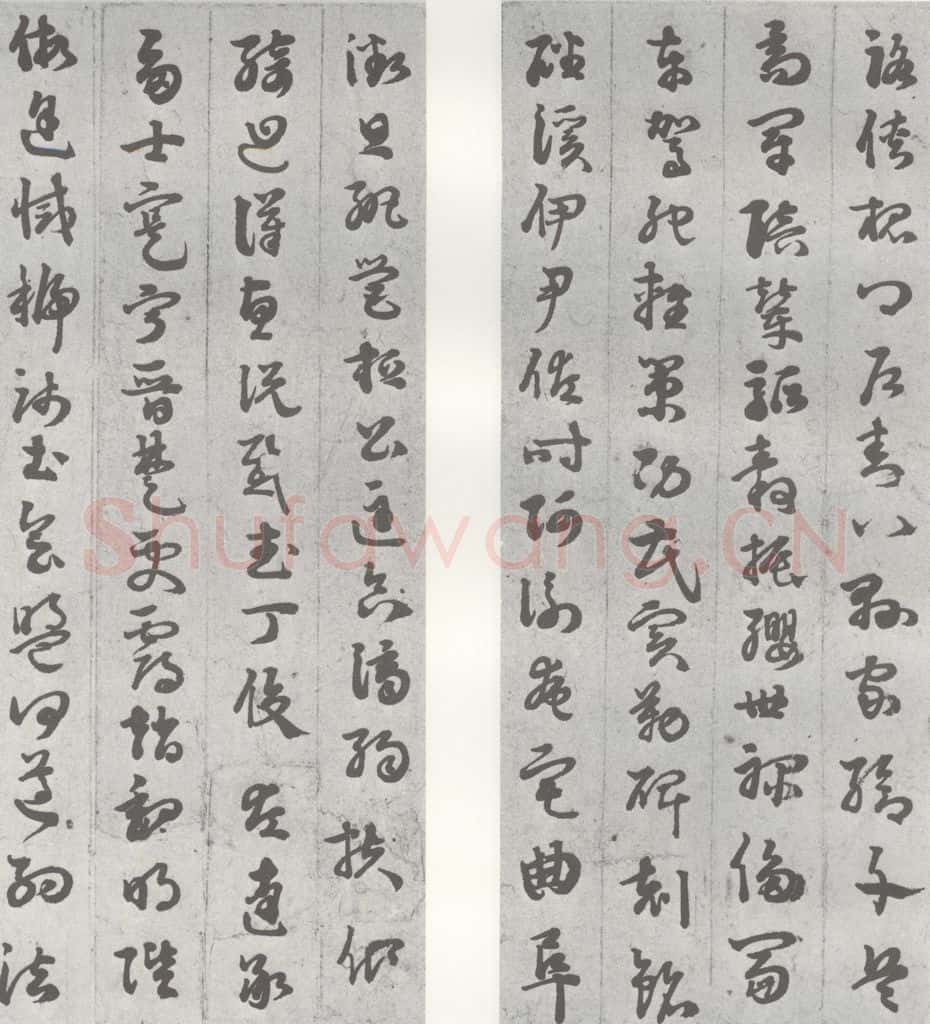 路俠槐卿户封八縣家給千兵
高冠陪輦驅轂振纓世祿侈富
車駕肥輕策功茂實勒碑刻銘
磻溪伊尹佐時阿衡奄宅曲阜
微旦孰營桓公匡合濟弱扶傾
綺迴漢惠說感武丁俊左達承
多士寔寧晉楚更霸明陛
假途滅虢踐土會盟何遵約法
Shufawang.CN